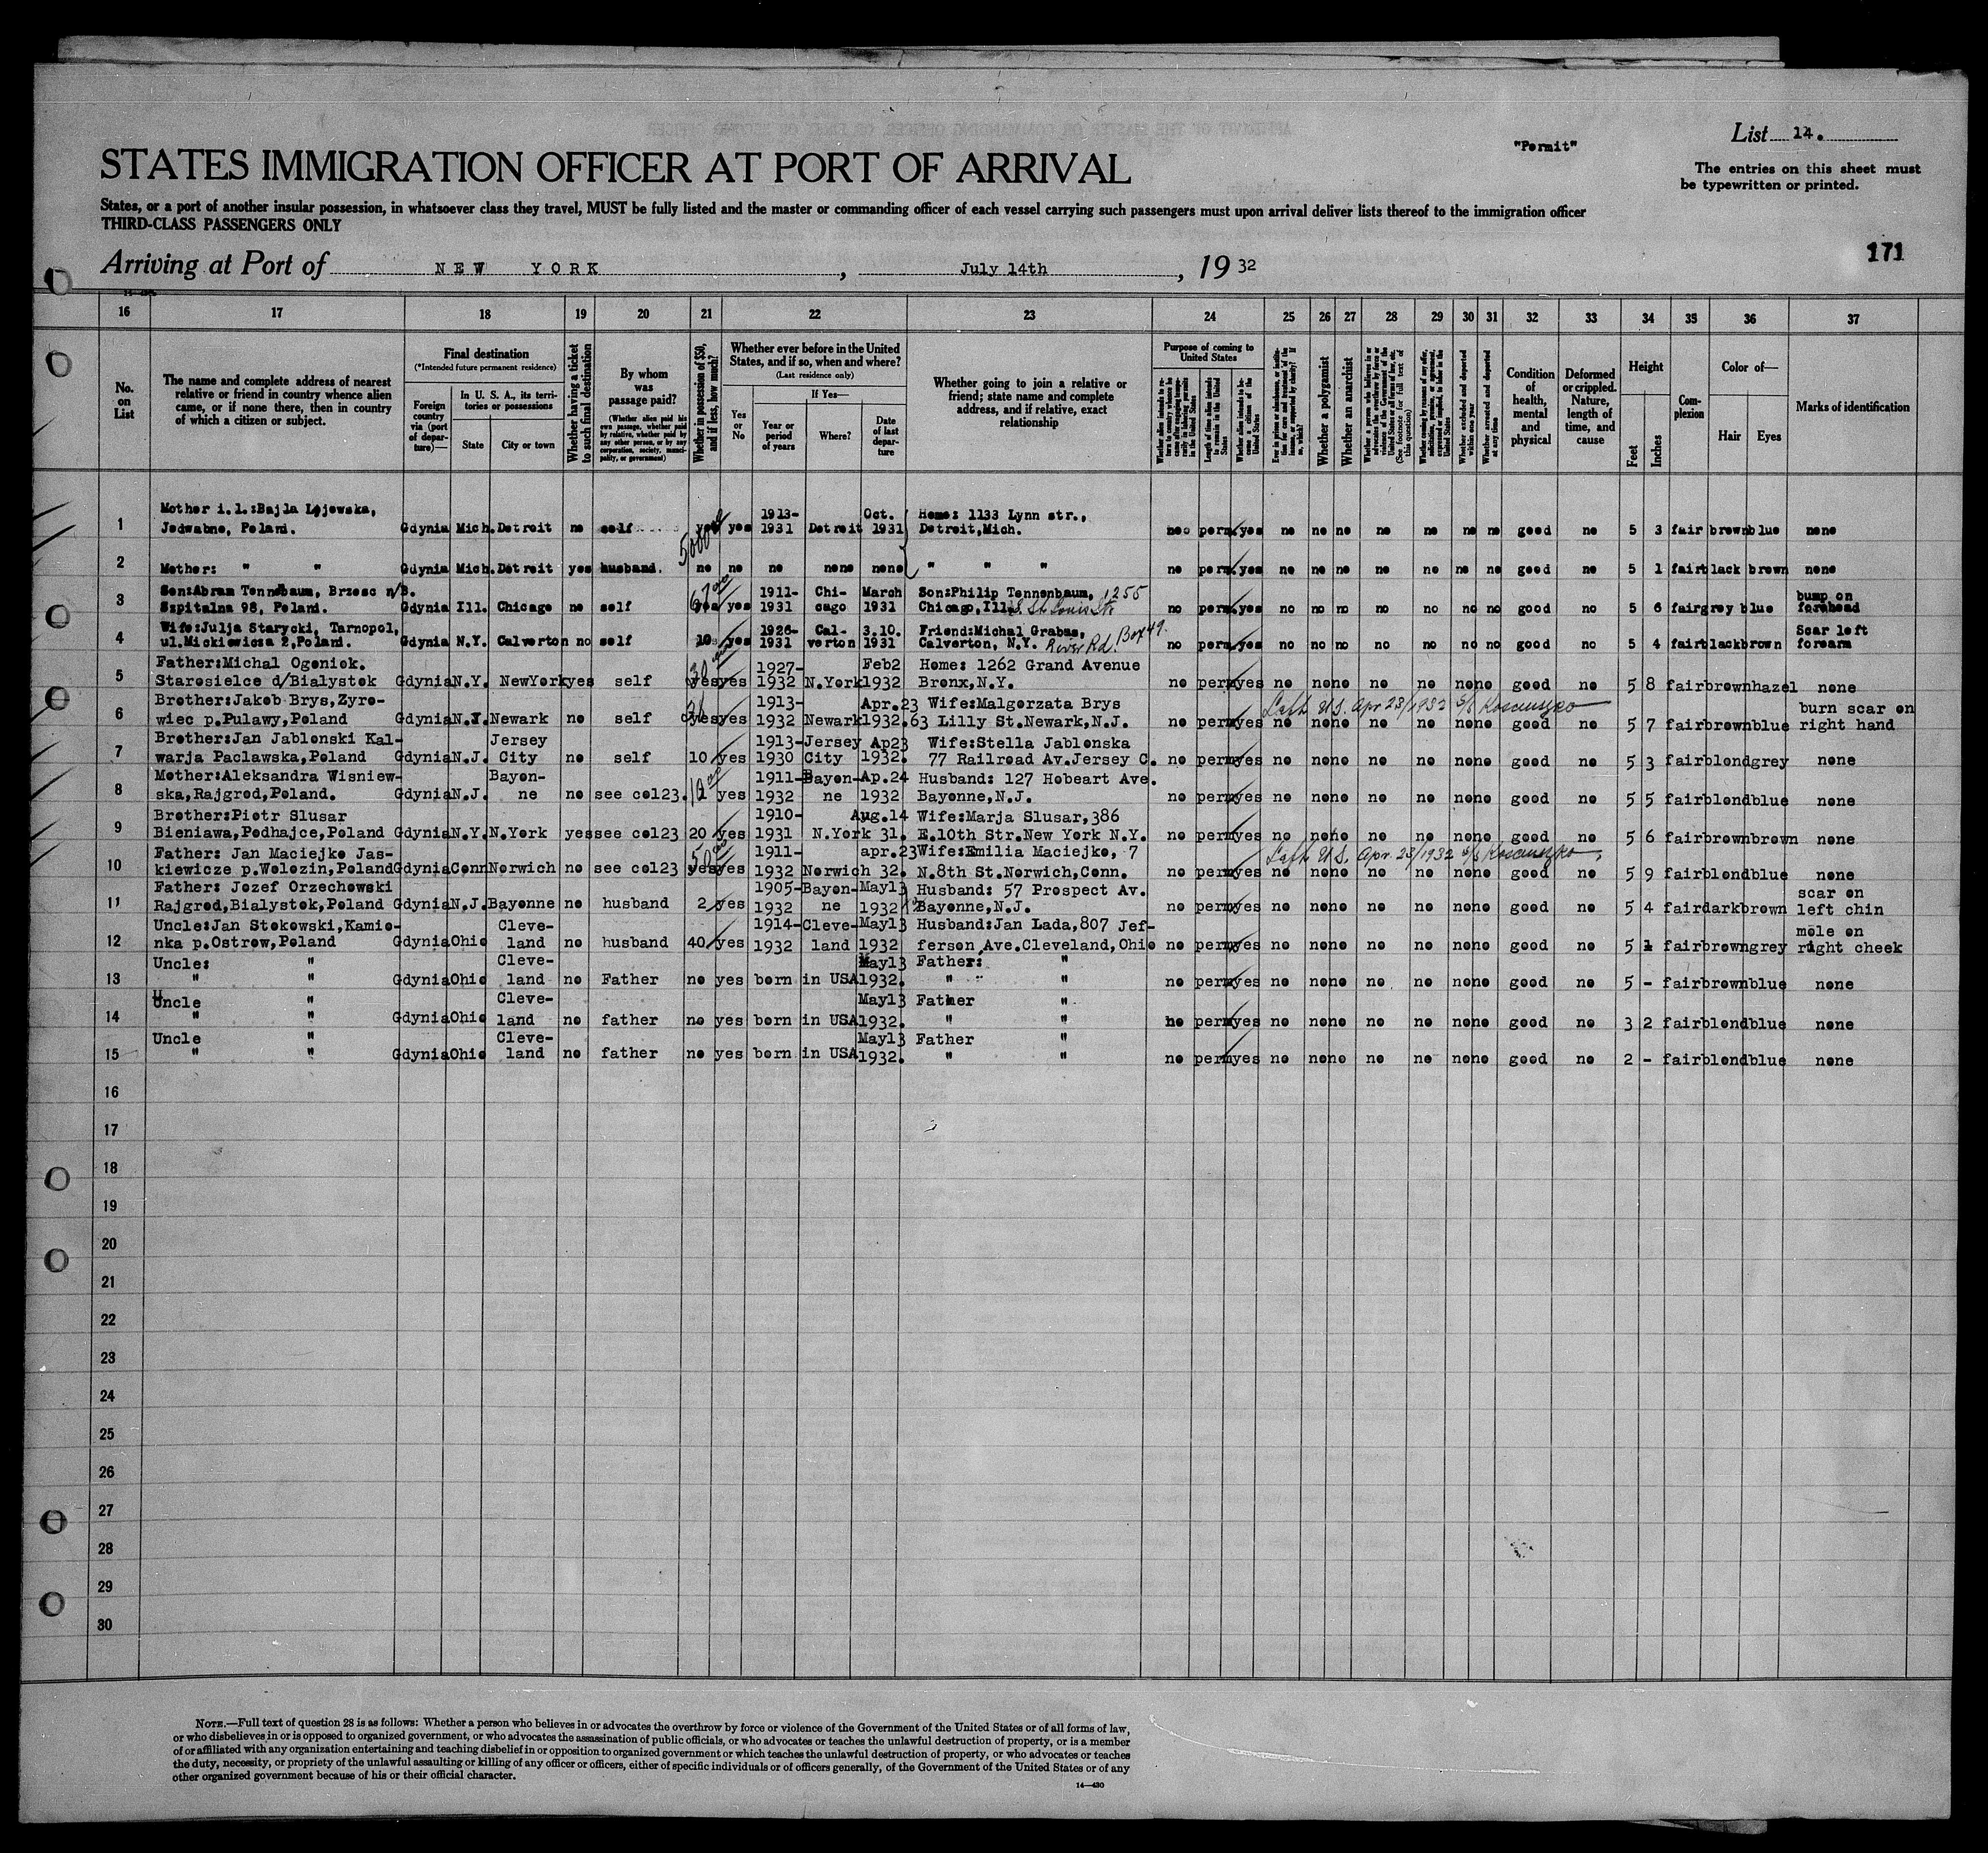 List 14.
"Permit"
The entries on this sheet must
be typewritten or printed.
STATES IMMIGRATION OFFICER AT PORT OF ARRIVAL
States, or a port of another insular possession, in whatsoever class they travel, MUST be fully listed and the master or commanding officer of each vessel carrying such passengers must upon arrival deliver lists thereof to the immigration officer
THIRD-CLASS PASSENGERS ONLY
171
Arriving at Port of NEW YORK, July 14th, 1932
16 17 18 19 20 21 22 23 24 25 26 27 28 29 30 31 32 33 34 35 36 37
No. on List
The name and complete address of nearest relative or friend in country whence alien came, or if none there, then in country of which a citizen or subject.
Final destination
(*Intended future permanent residence)
Foreign country via (port of departure)—
In U. S. A., its territories or possessions
State
City or town
Whether having a ticket to such final destination
By whom was passage paid?
(Whether alien paid his own passage, whether paid by relative, whether paid by any other person, or by any corporation, society, municipality, or government)
Whether in possession of $50, and if less, how much?
Whether ever before in the United States, and if so, when and where?
(Last residence only)
Yes or No
If Yes—
Year or period of years
Where?
Date of last departure
Whether going to join a relative or friend; state name and complete address, and if relative, exact relationship
Purpose of coming to United States
Length of time alien intends to remain in the United States
Whether alien intends to become a citizen of the United States
Whether a polygamist
Whether an anarchist
Whether excluded and deported within one year
Whether arrested and deported at any time
Condition of health, mental and physical
Deformed or crippled. Nature, length of time, and cause
Height
Feet
Inches
Complexion
Color of—
Hair
Eyes
Marks of identification
Mother i.l.:Bajla Lojewska, 1913- Oct. Home: 1133 Lynn str.,
1 Jedwabne, Poland. Gdynia Mich. Detroit no self yes yes 1931 Detroit 1931 Detroit,Mich. no perm. yes no no no no no no no good no 5 3 fair brown blue none
5000
2 Mother: " " Gdynia Mich. Detroit yes husband. no no no none none " " " no perm. yes no no no no no no no good no 5 1 fair black brown none
Son:Abram Tennebaum, Brzesc n/B. 67 1911- Chi- March Son:Philip Tennenbaum, 1255 bump on
3 Szpitalna 98, Poland. Gdynia Ill. Chicago no self yes yes 1931 cago 1931 Chicago,Ill. S. St. Louis Str no perm. yes no no no no no no no good no 5 6 fair grey blue forehead
Wife:Julja Starycki, Tarnopol, 1926- Cal- 3.10. Friend:Michal Grabas, Box 49. Scar left
4 ul.Mickiewicza 2,Poland. Gdynia N.Y. Calverton no self 10 yes 1931 verton 1931 Calverton, N.Y. River Rd. no perm. yes no no no no no no no good no 5 4 fair black brown forearm
Father:Michal Ogoniok. 30 1927- Feb2 Home: 1262 Grand Avenue
5 Starosielce d/Bialystok Gdynia N.Y. NewYork yes self yes yes 1932 N.York 1932 Bronx,N.Y. no perm yes no no no no no no no good no 5 8 fair brown hazel none
Brother:Jakob Brys,Zyro- 1913- Apr.23 Wife:Malgorzata Brys Left U.S. Apr 23/1932 S/S Kosciuszko burn scar on
6 wiec p.Pulawy,Poland Gdynia N.J. Newark no self yes yes 1932 Newark 1932. 63 Lilly St.Newark,N.J. no perm yes no no no no no no no good no 5 7 fair brown blue right hand
Brother:Jan Jablonski Kal- Jersey 1913- Jersey Ap23 Wife:Stella Jablonska
7 warja Paclawska,Poland Gdynia N.J. City no self 10 yes 1930 City 1932. 77 Railroad Av.Jersey C. no perm yes no no no no no no no good no 5 3 fair blond grey none
Mother:Aleksandra Wisniew- Bayon- 1911- Bayon- Ap.24 Husband: 127 Hobeart Ave.
8 ska,Rajgrod,Poland. Gdynia N.J. ne no see col23. 10 yes 1932 ne 1932 Bayonne,N.J. no perm yes no no no no no no no good no 5 5 fair blond blue none
Brother:Piotr Slusar 1910- Aug.14 Wife:Marja Slusar,386
9 Bieniawa,Podhajce,Poland Gdynia N.Y. N.York yes see col23 20 yes 1931 N.York 31. E.10th Str.New York N.Y. no perm yes no no no no no no no good no 5 6 fair brown brown none
Father: Jan Maciejko Jas- 50 1911- apr.23 Wife:Emilia Maciejko, 7 Left U.S. Apr. 23/1932 S/S Kosciuszko
10 kiewicze p.Wolozin,Poland Gdynia Conn Norwich no see col23 yes yes 1932 Norwich 32. N.8th St.Norwich,Conn. no perm yes no no no no no no no good no 5 9 fair blond blue none
Father: Jozef Orzechowski 1905- Bayon- May13 Husband: 57 Prospect Av. scar on
11 Rajgrod,Bialystok,Poland Gdynia N.J. Bayonne no husband 2 yes 1932 ne 1932 Bayonne,N.J. no perm yes no no no no no no no good no 5 4 fair dark brown left chin
Uncle:Jan Stokowski,Kamio- Cleve- 1914- Cleve- May13 Husband:Jan Lada,807 Jef- mole on
12 nka p.Ostrow,Poland Gdynia Ohio land no husband 40 yes 1932 land 1932 ferson Ave.Cleveland,Ohio no perm yes no no no no no no no good no 5 1 fair brown grey right cheek
Uncle: " Cleve- May13 Father: "
13 " " Gdynia Ohio land no Father no yes born in USA 1932. " " no perm yes no no no no no no no good no 5 - fair brown blue none
Uncle " Cleve- May13 Father "
14 " " Gdynia Ohio land no father no yes born in USA 1932. " " no perm yes no no no no no no no good no 3 2 fair blond blue none
Uncle " Cleve- May13 Father "
15 " " Gdynia Ohio land no father no yes born in USA 1932. " " no perm yes no no no no no no no good no 2 - fair blond blue none
16
17
18
19
20
21
22
23
24
25
26
27
28
29
30
NOTE.—Full text of question 28 is as follows: Whether a person who believes in or advocates the overthrow by force or violence of the Government of the United States or of all forms of law,
or who disbelieves in or is opposed to organized government, or who advocates the assassination of public officials, or who advocates or teaches the unlawful destruction of property, or is a member
of or affiliated with any organization entertaining and teaching disbelief in or opposition to organized government or which teaches the unlawful destruction of property, or who advocates or teaches
the duty, necessity, or propriety of the unlawful assaulting or killing of any officer or officers, either of specific individuals or of officers generally, of the Government of the United States or of any
other organized government because of his or their official character.
14—430